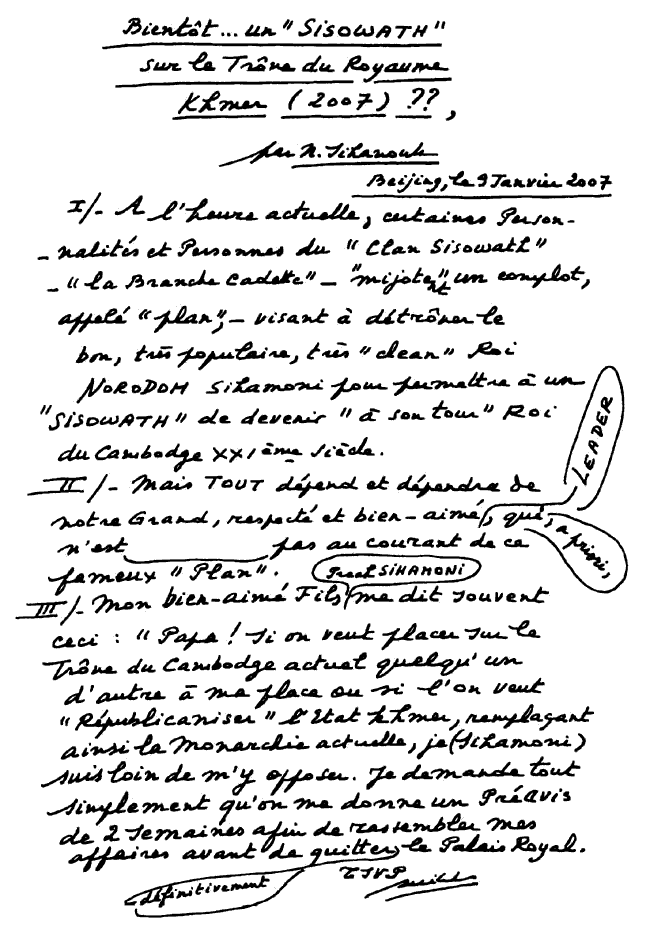 Bientôt... un "SISOWATH"
sur le Trône du Royaume
Khmer (2007) ??,
par N. Sihanouk
Beijing, le 9 Janvier 2007
I/- A l'heure actuelle, certaines Person-
-nalités et Personnes du "Clan Sisowath"
-"la Branche Cadette"- "mijotent" un complot,
appelé "plan",- visant à détrôner le
bon, très populaire, très "clean" Roi
NORODOM Sihamoni pour permettre à un
"SISOWATH" de devenir "à son tour" Roi
du Cambodge XXIème siècle.
LEADER
II/- Mais TOUT dépend et dépendra de
notre Grand, respecté et bien-aimé, qui,
a priori,
n'est pas au courant de ce
fameux "Plan".
Preah SIHAMONI
III/- Mon bien-aimé Fils me dit souvent
ceci : "Papa ! Si on veut placer sur le
Trône du Cambodge actuel quelqu'un
d'autre à ma place ou si l'on veut
"Républicaniser" l'Etat khmer, remplaçant
ainsi la Monarchie actuelle, je (Sihamoni)
suis loin de m'y opposer. Je demande tout
simplement qu'on me donne un Préavis
de 2 semaines afin de rassembler mes
affaires avant de quitter le Palais Royal.
définitivement
TSVP